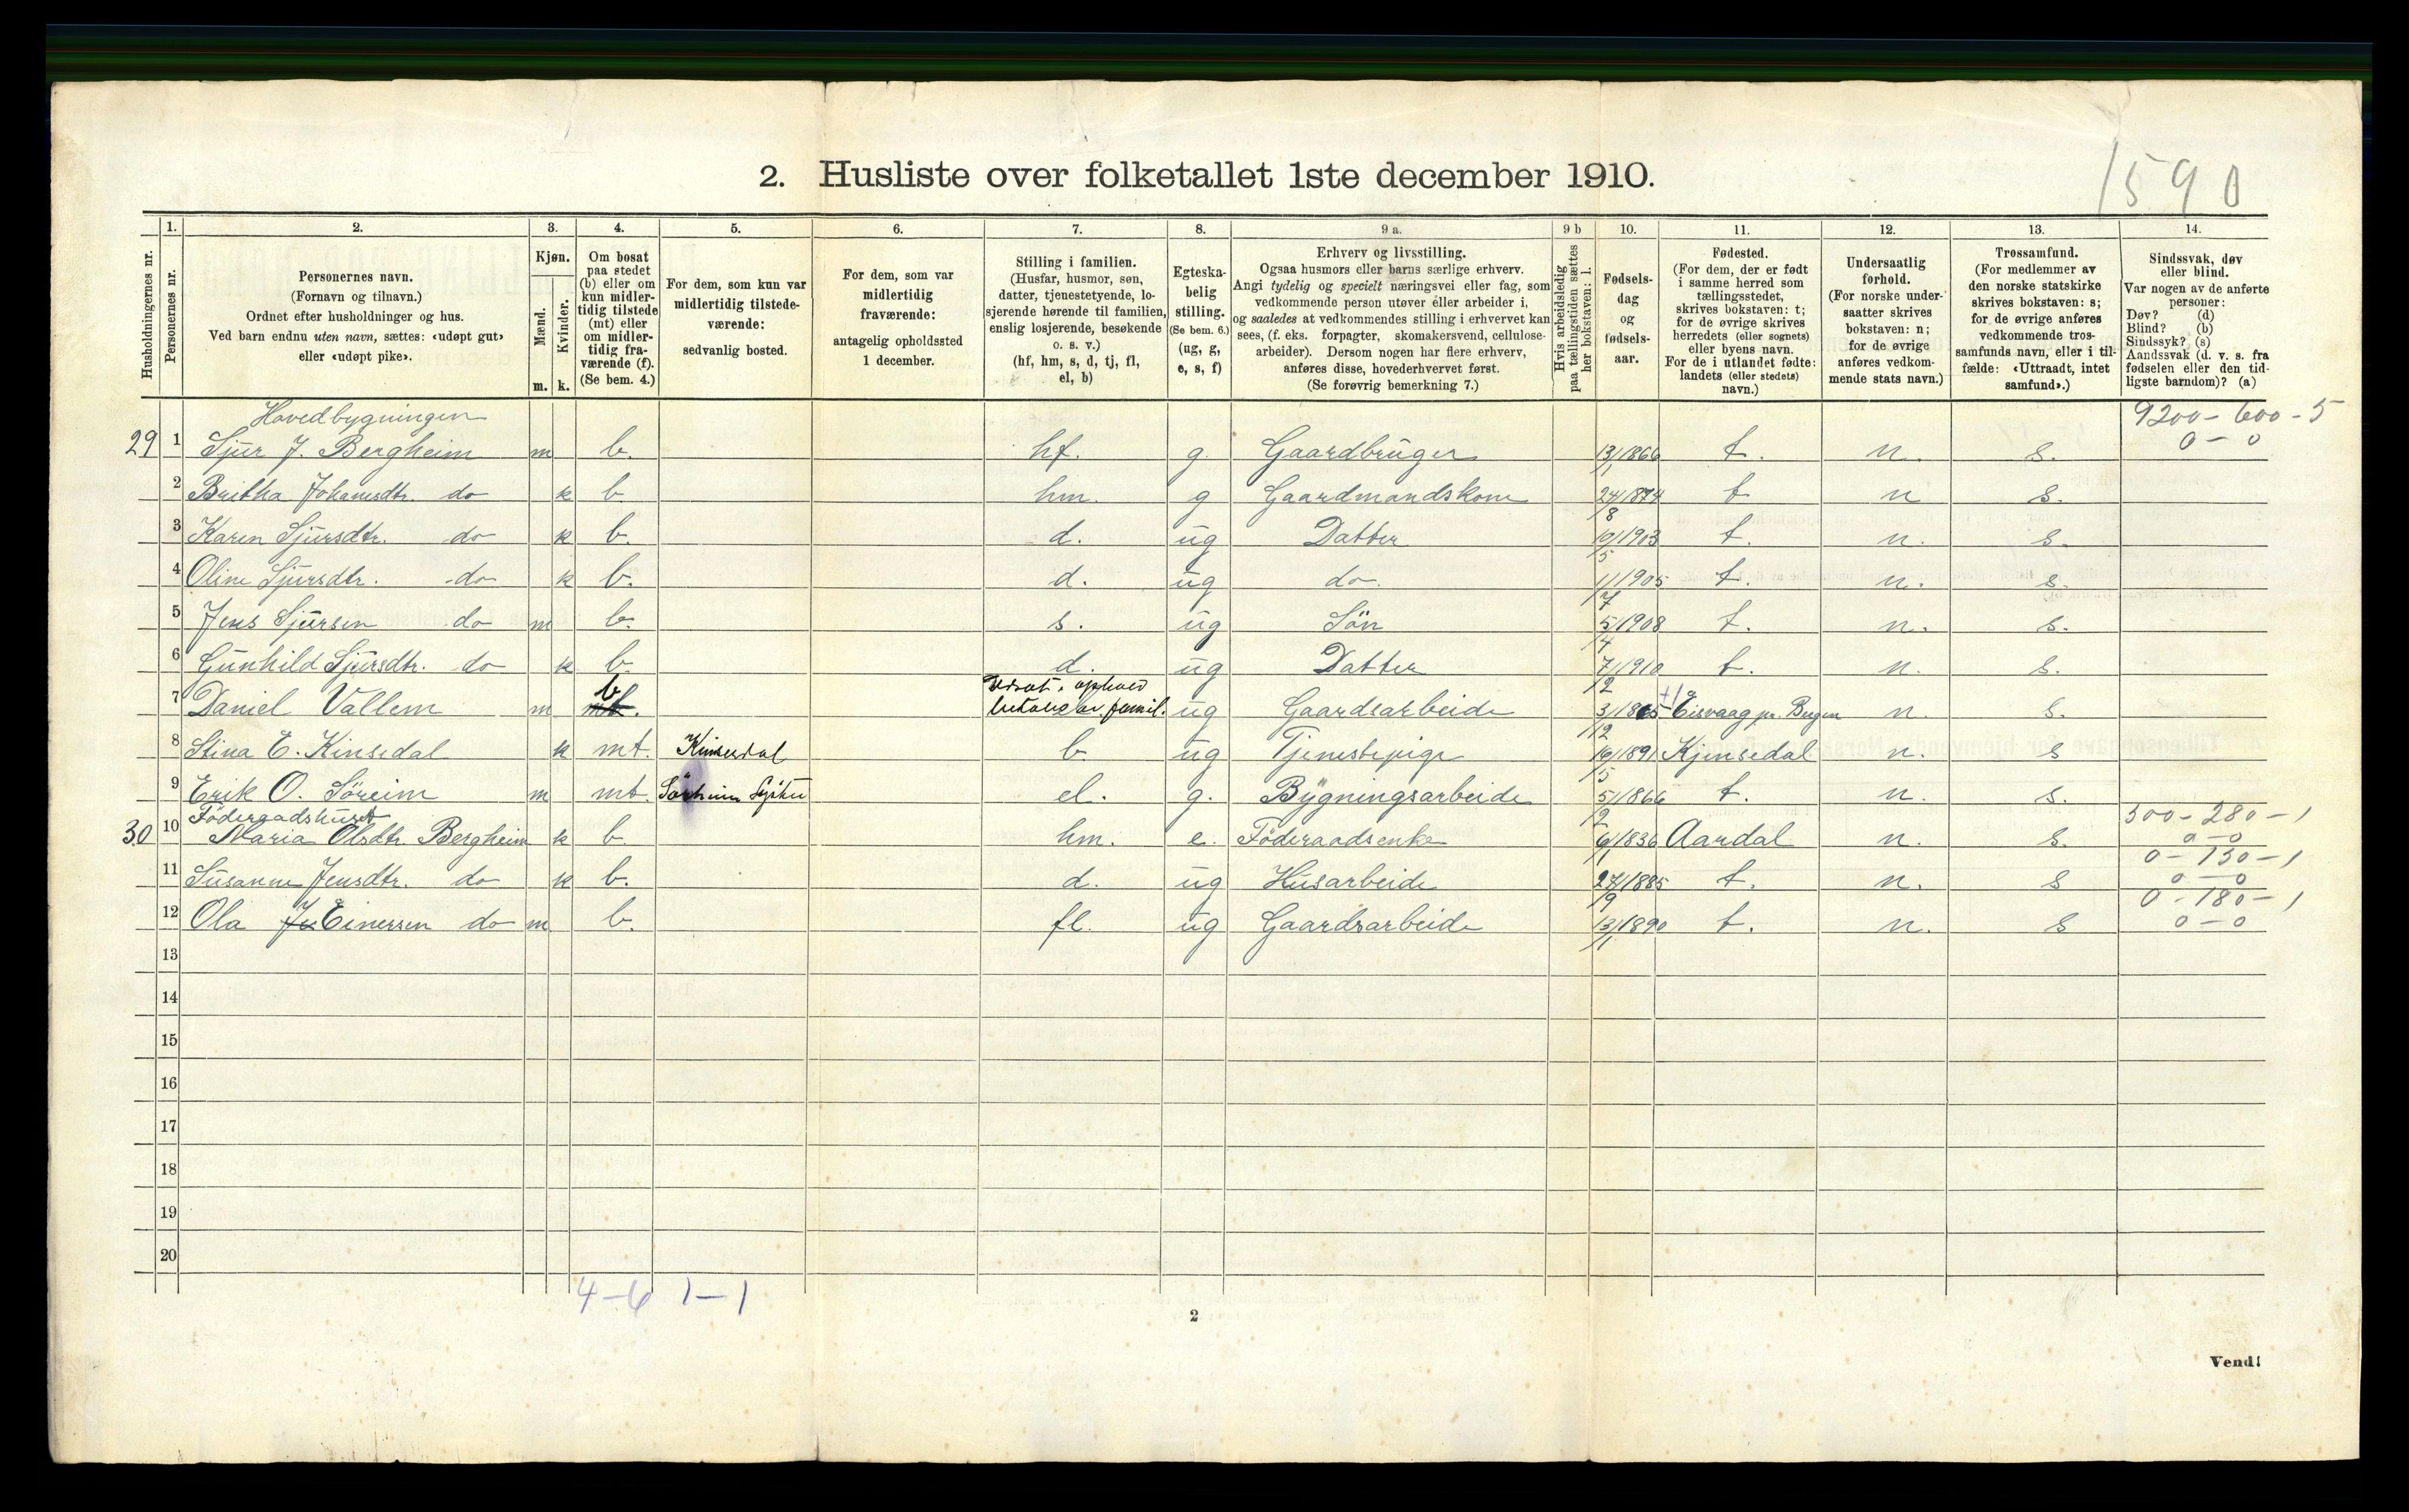 1590
2. Husliste over folketallet 1ste december 1910.
Husholdningernes nr.
1.
Personernes nr.
2.
Personernes navn.
(Fornavn og tilnavn.)
Ordnet efter husholdninger og hus.
Ved barn endnu uten navn, sættes: «udøpt gut»
eller «udøpt pike».
3.
Kjøn.
Mænd.
Kvinder.
m. k.
4.
Om bosat
paa stedet
(b) eller om
kun midler-
tidig tilstede
(mt) eller
om midler-
tidig fra-
værende (f).
(Se bem. 4.)
5.
For dem, som kun var
midlertidig tilstede-
værende:
sedvanlig bosted.
6.
For dem, som var
midlertidig
fraværende:
antagelig opholdssted
1 december.
7.
Stilling i familien.
(Husfar, husmor, søn,
datter, tjenestetyende, lo-
sjerende hørende til familien,
enslig losjerende, besøkende
o. s. v.)
(hf, hm, s, d, tj, fl,
el, b)
8.
Egteska-
belig
stilling.
(Se bem. 6.)
(ug, g,
e, s, f)
9 a.
Erhverv og livsstilling.
Ogsaa husmors eller barns særlige erhverv.
Angi tydelig og specielt næringsvei eller fag, som
vedkommende person utøver eller arbeider i,
og saaledes at vedkommendes stilling i erhvervet kan
sees, (f. eks. forpagter, skomakersvend, cellulose-
arbeider). Dersom nogen har flere erhverv,
anføres disse, hovederhvervet først.
(Se forøvrig bemerkning 7.)
9 b
Hvis arbeidsledig
paa tællingstiden sættes
her bokstaven: l.
10.
Fødsels-
dag
og
fødsels-
aar.
11.
Fødested.
(For dem, der er født
i samme herred som
tællingsstedet,
skrives bokstaven: t;
for de øvrige skrives
herredets (eller sognets)
eller byens navn.
For de i utlandet fødte:
landets (eller stedets)
navn.)
12.
Undersaatlig
forhold.
(For norske under-
saatter skrives
bokstaven: n;
for de øvrige
anføres vedkom-
mende stats navn.)
13.
Trossamfund.
(For medlemmer av
den norske statskirke
skrives bokstaven: s;
for de øvrige anføres
vedkommende tros-
samfunds navn, eller i til-
fælde: «Uttraadt, intet
samfund».)
14.
Sindssvak, døv
eller blind.
Var nogen av de anførte
personer:
Døv? (d)
Blind? (b)
Sindssyk? (s)
Aandssvak (d. v. s. fra
fødselen eller den tid-
ligste barndom)? (a)
Hovedbygningen 9200-600-5
29 1 Sjur J. Bergheim m b. hf. g. Gaardbruger 13/1 1866 t. n. s. 0-0
2 Britha Johansdtr. do k b hm. g Gaardmandskone 24/8 1874 t n s.
3 Karen Sjursdtr. do k b. d. ug Datter 10/5 1903 t. n. s.
4 Oline Sjursdtr. do k b. d. ug do 1/7 1905 t. n. s.
5 Jens Sjursen do m b. s. ug Sön 5/4 1908 t. n. s.
6 Gunhild Sjursdtr. do k b d. ug Datter 7/2 1910 t. n. s.
7 Daniel Vallem m mt. b ophold betales av famil. ug Gaardsarbeide 3/12 1865 Eisvaag pr. Bergen n. s.
8 Stina E. Kinsedal k mt. Kinsedal b. ug Tjenestepige 10/5 1891 Kjinsedal n. s
9 Erik O. Söreim m mt. Sörheim Lyster el. g. Bygningsarbeide 5/2 1866 t. n. s.
Föderaadshuset 300-280-1
30 10 Maria Olsdtr. Bergheim k b. hm. e. Föderaadsenke 6/1 1836 Aardal n. s. 0-0
0-130-1
11 Susanne Jensdtr. do k b. d. ug Husarbeide 24/9 1885 t. n. s 0-0
0-180-1
12 Ola Je Einersen do m b. fl. ug Gaardsarbeide 13/1 1890 t. n. s 0-0
13
14
15
16
17
18
19
20
4-6 1-1
2
Vend!